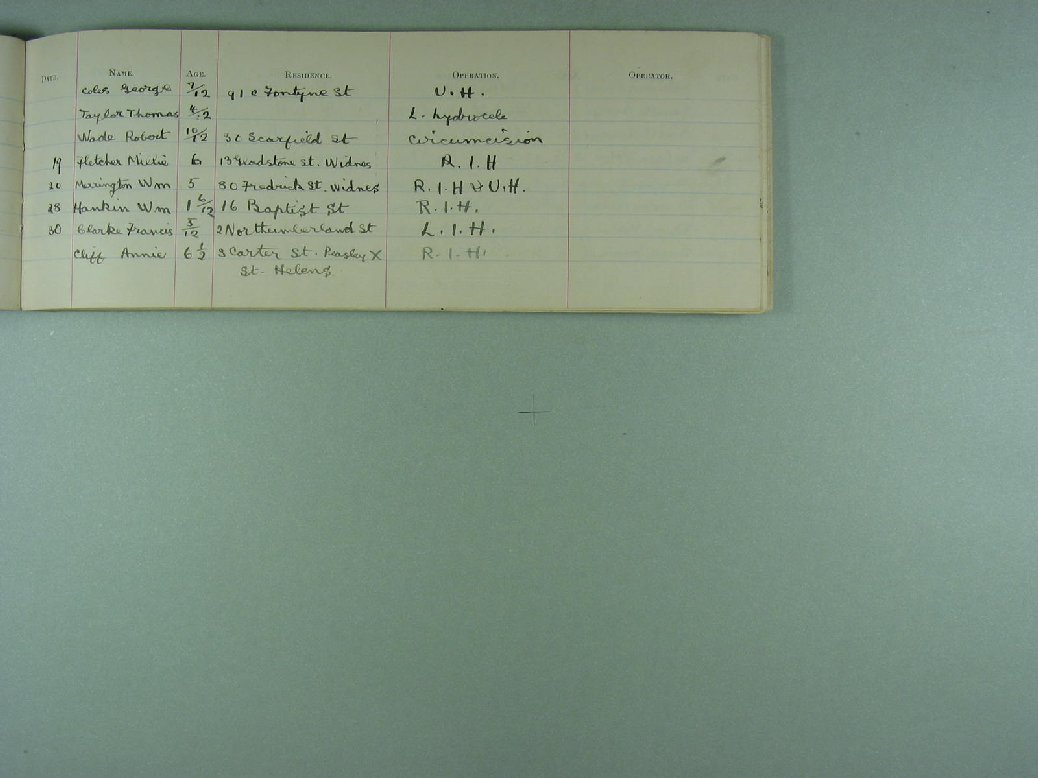 DATE. NAME. AGE. RESIDENCE. OPERATION. OPERATOR.
Coles George 7/12 91 c Fontyne St U. H.
Taylor Thomas 4/12 L. hydrocele
Wade Robert 10/12 30 Scarfield St Circumcision
19 Fletcher 6 13 Gladstone St. Widnes R. I. H
20 Merrington Wm 5 30 Fredrick St. Widnes R. I. H & U. H.
28 Hankin Wm 1 6/12 16 Baptist St R. I. H.
30 Clarke Francis 5/12 2 Northumberland St L. I. H.
Cliff Annie 6 1/2 3 Carter St. Peasley X R. I. H.
St. Helens